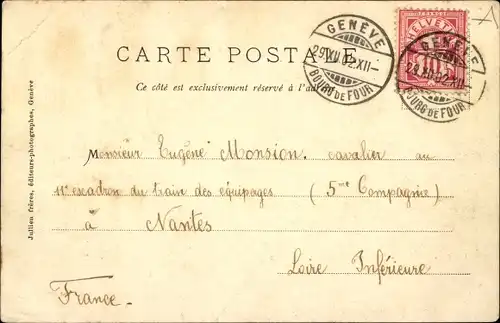 CARTE POSTALE
Ce côté est exclusivement réservé à l'adresse
GENÈVE
29.XII.02.XII-
BOURG DE FOUR
HELVETIA
10
GENÈVE
29.XII.02.XII-
BOURG DE FOUR
Monsieur Eugène Monsion. cavalier au
11e escadron du train des équipages (5me Compagnie)
à Nantes
Loire Inférieure
France-
Jullien frères, éditeurs-photographes, Genève